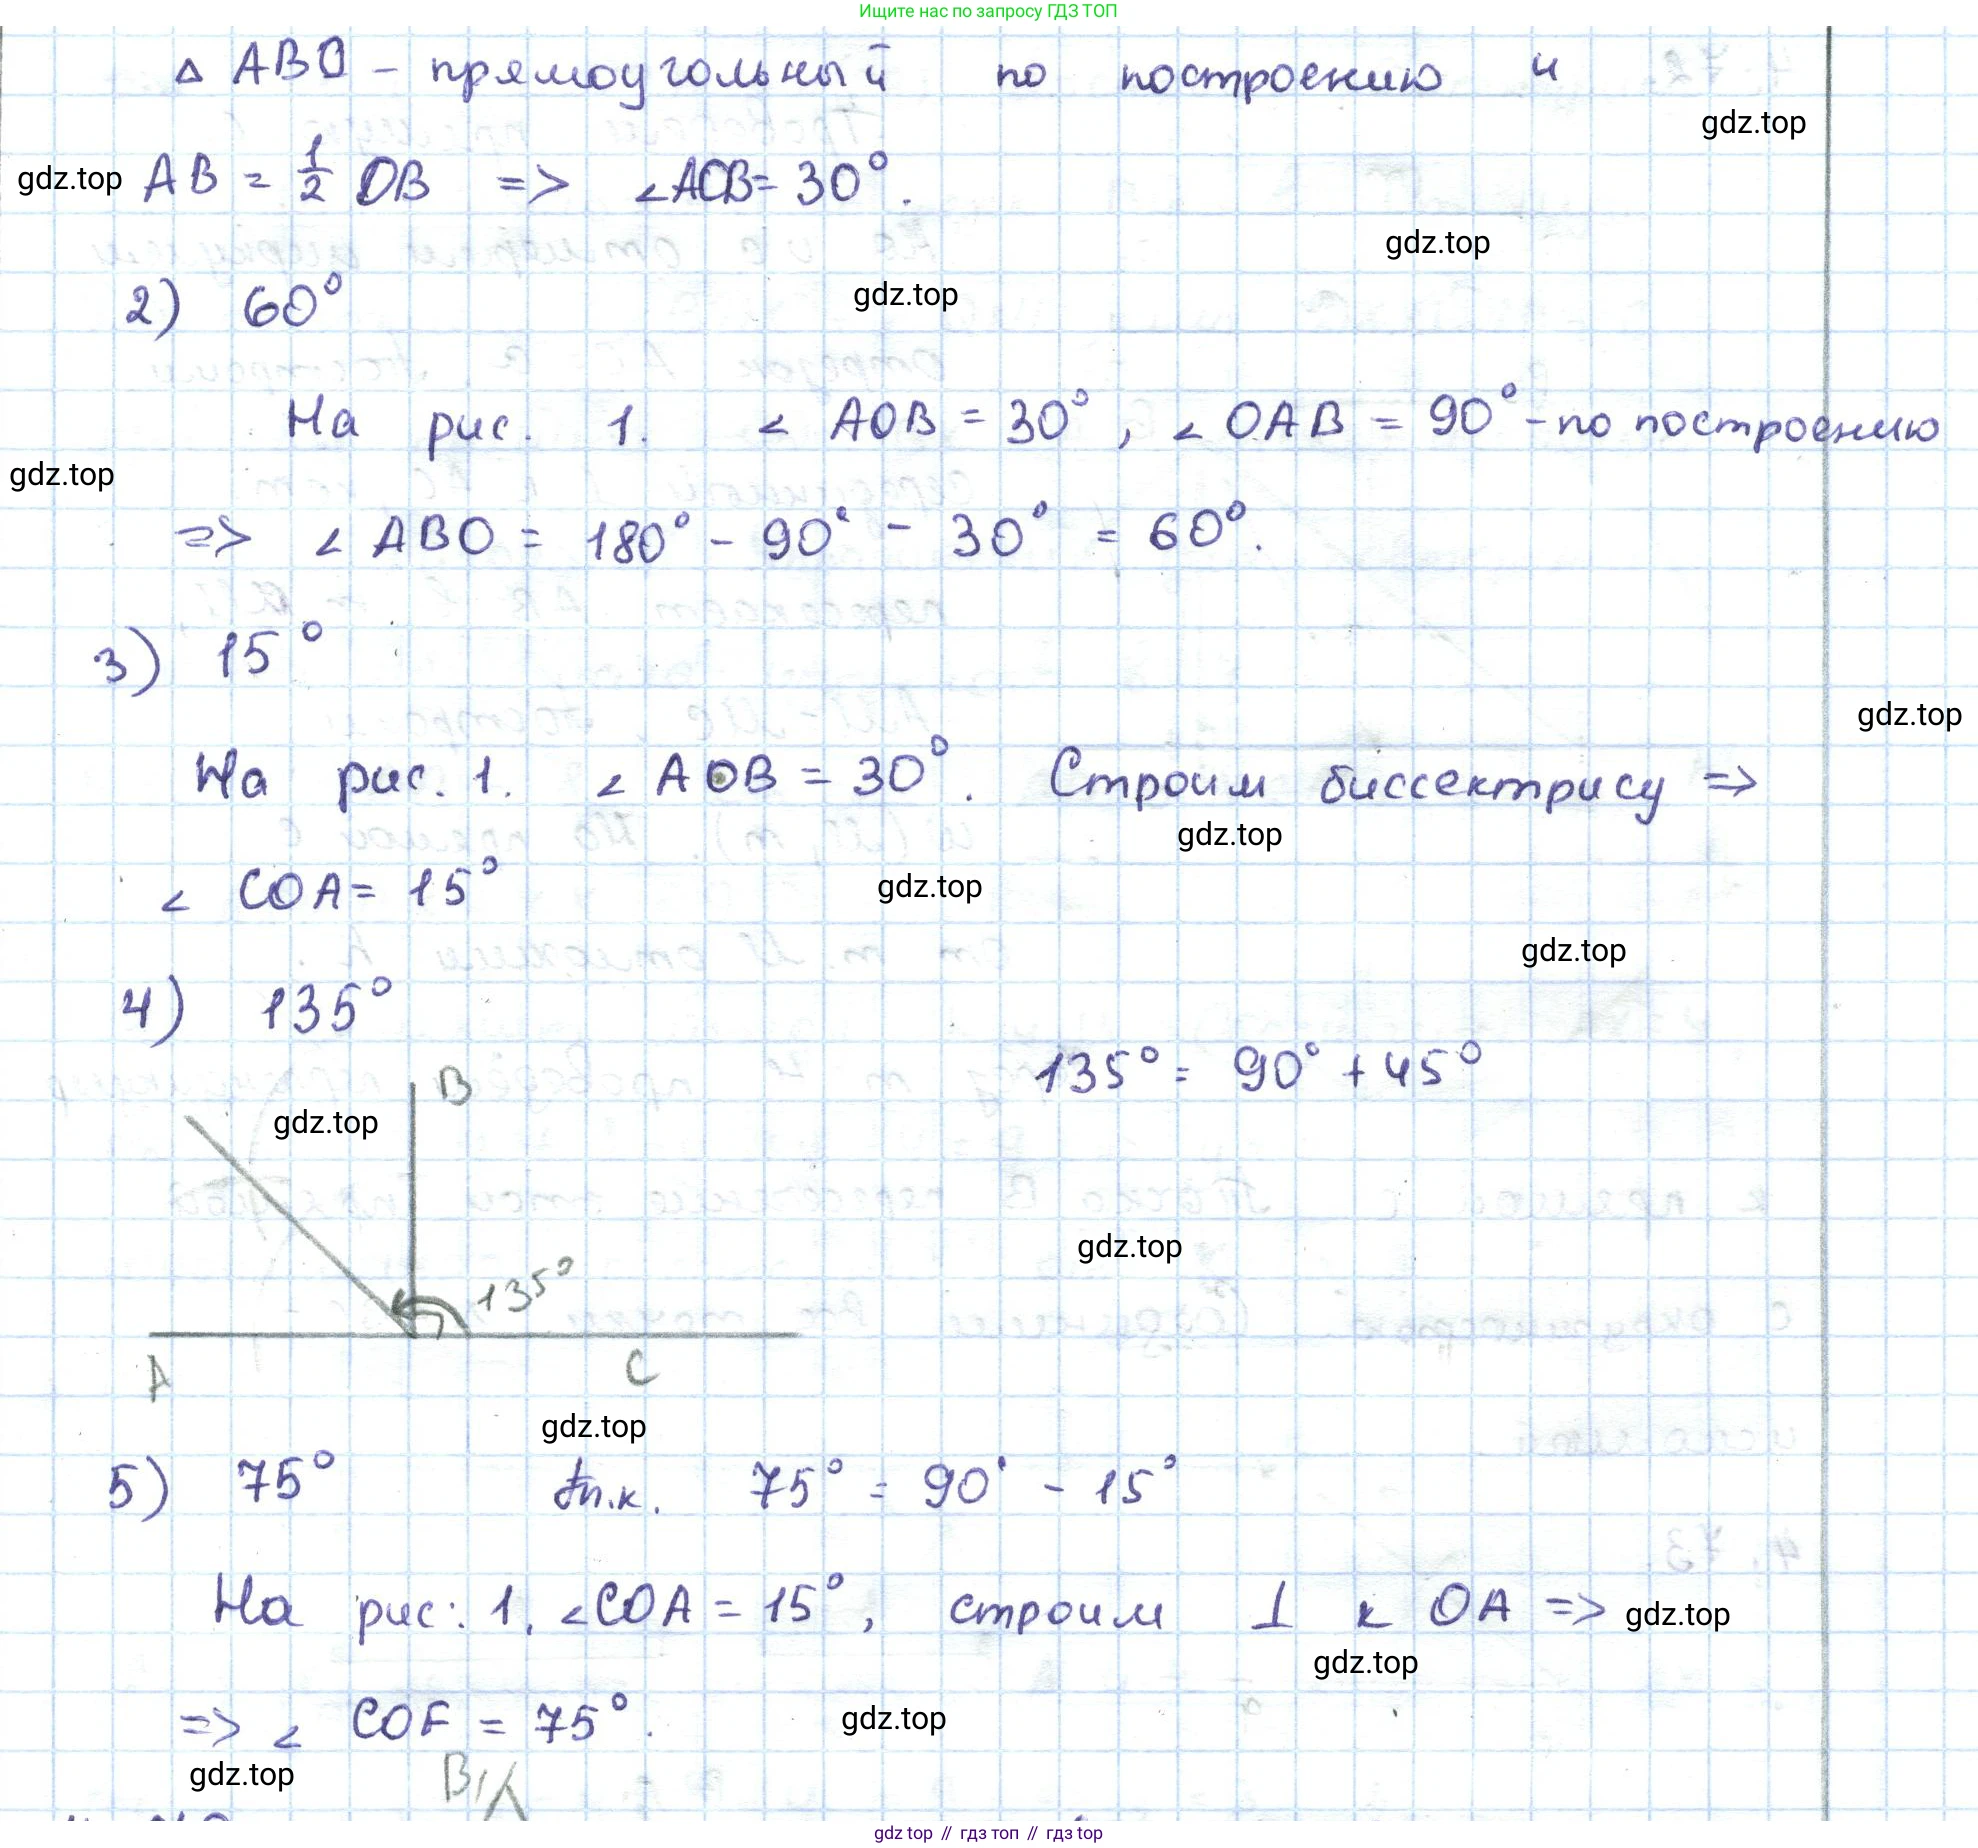 Ищите нас по запросу ГДЗ ТОП
△ ABO – прямоугольный по построению и
gdz.top
gdz.top AB = 1/2 OB => ∠AOB = 30°.
gdz.top
2) 60° gdz.top
На рис. 1. ∠ AOB = 30°, ∠ OAB = 90° – по построению
gdz.top
=> ∠ ABO = 180° – 90° – 30° = 60°.
3) 15°
gdz.top
На рис. 1. ∠ AOB = 30°. Строим биссектрису =>
gdz.top
∠ COA = 15° gdz.top
gdz.top
4) 135°
135° = 90° + 45°
B
gdz.top
gdz.top
135°
A C
gdz.top
5) 75° т.к. 75° = 90° – 15°
На рис. 1. ∠COA = 15°, строим ⊥ к OA => gdz.top
gdz.top
=> ∠ COF = 75°. gdz.top
gdz.top B
gdz top // гдз топ // гдз top